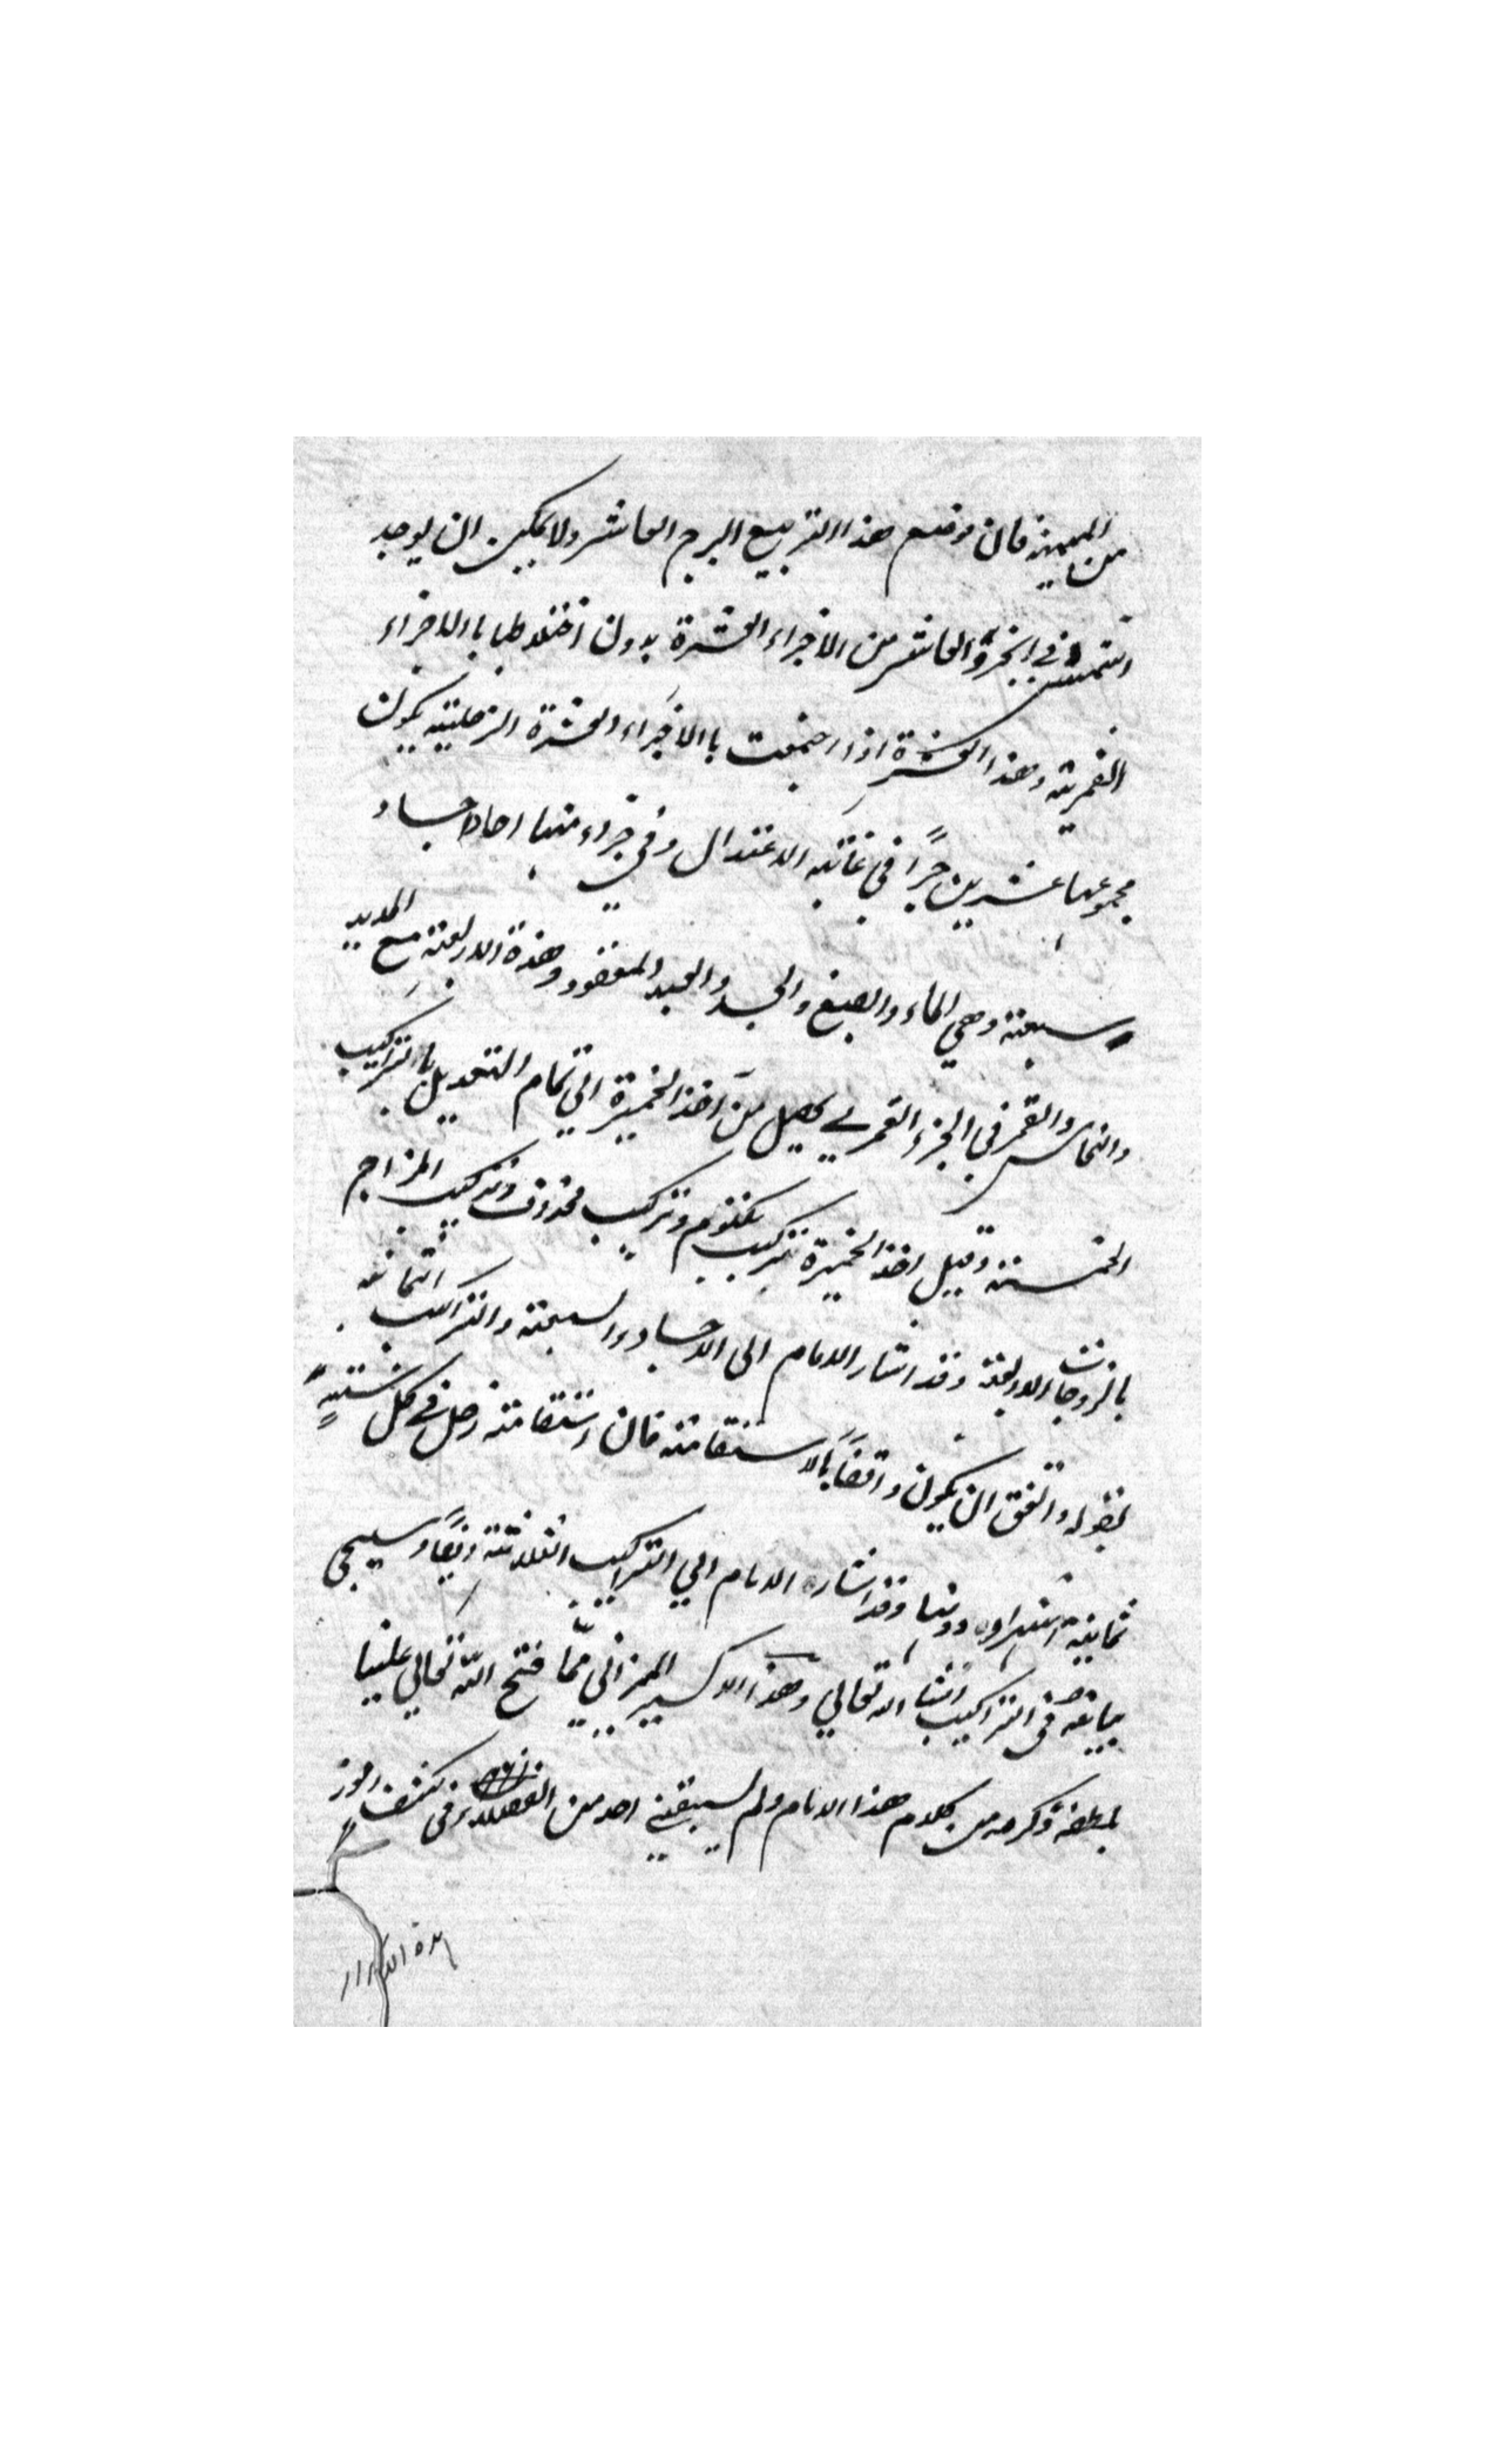 من الميمنه فان موضع هذا التربيع البرج العاشر ولا يمكن ان يوجد
الشمس في الجزؤ العاشر من الاجزاء العشرة بدون اختلاطها باالاجزاء
القمرية وهذا العشرة اذا اجتمعت باالاجزاء العشرة الزحلية يكون
مجموعها عشرين جزأً في غاية الاعتدال وفي جزء منها اجساد
سبعة وهي الماء والصبغ والجسد والعبد المعقود وهذة الاربعة مع الحديد
والنحاس والقمر في الجزء القمري يحصل من اخذ الخميرة الي تمام التعديل باالتراكيب
الخمسة وقيل اخذ الخميرة تركيب مكتوم وتركيب محذوف وتركيب المزاج
بالزوجات الاربعة وقد اشار الامام الى الاجساد السبعة والتراكيب الثمانية
بقوله واتفق ان يكون واقفاً بالاستقامة فان استقامة زحل في كل سنةٍ
ثمانية اشهر وقد اشار الامام الي التراكيب الثلاثة ايضاً وسيجي
بيانه في التراكيب انشا الله تعالي وهذا الاكسير الميزاني ممّا فتح الله تعالي علينا
بلطفه وكرمه من كلام هذا الامام ولم يسبقني احد من الفضلاء في كشف رموز
هذة الاسرار